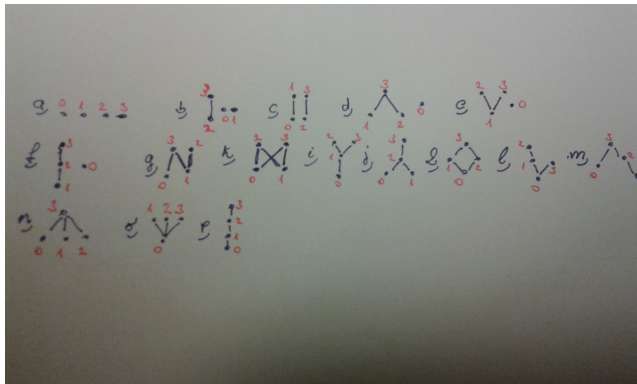 a 0 1 2 3 b 3 2 0 1 c 1 3 0 2 d 3 1 2 0 e 2 3 1 0
f 3 2 1 0 g 3 2 0 1 h 2 3 0 1 i 2 3 1 0 j 3 2 0 1 k 3 1 2 0 l 2 1 3 0 m 3 0 2
n 3 0 1 2 o 1 2 3 0 p 3 2 1 0